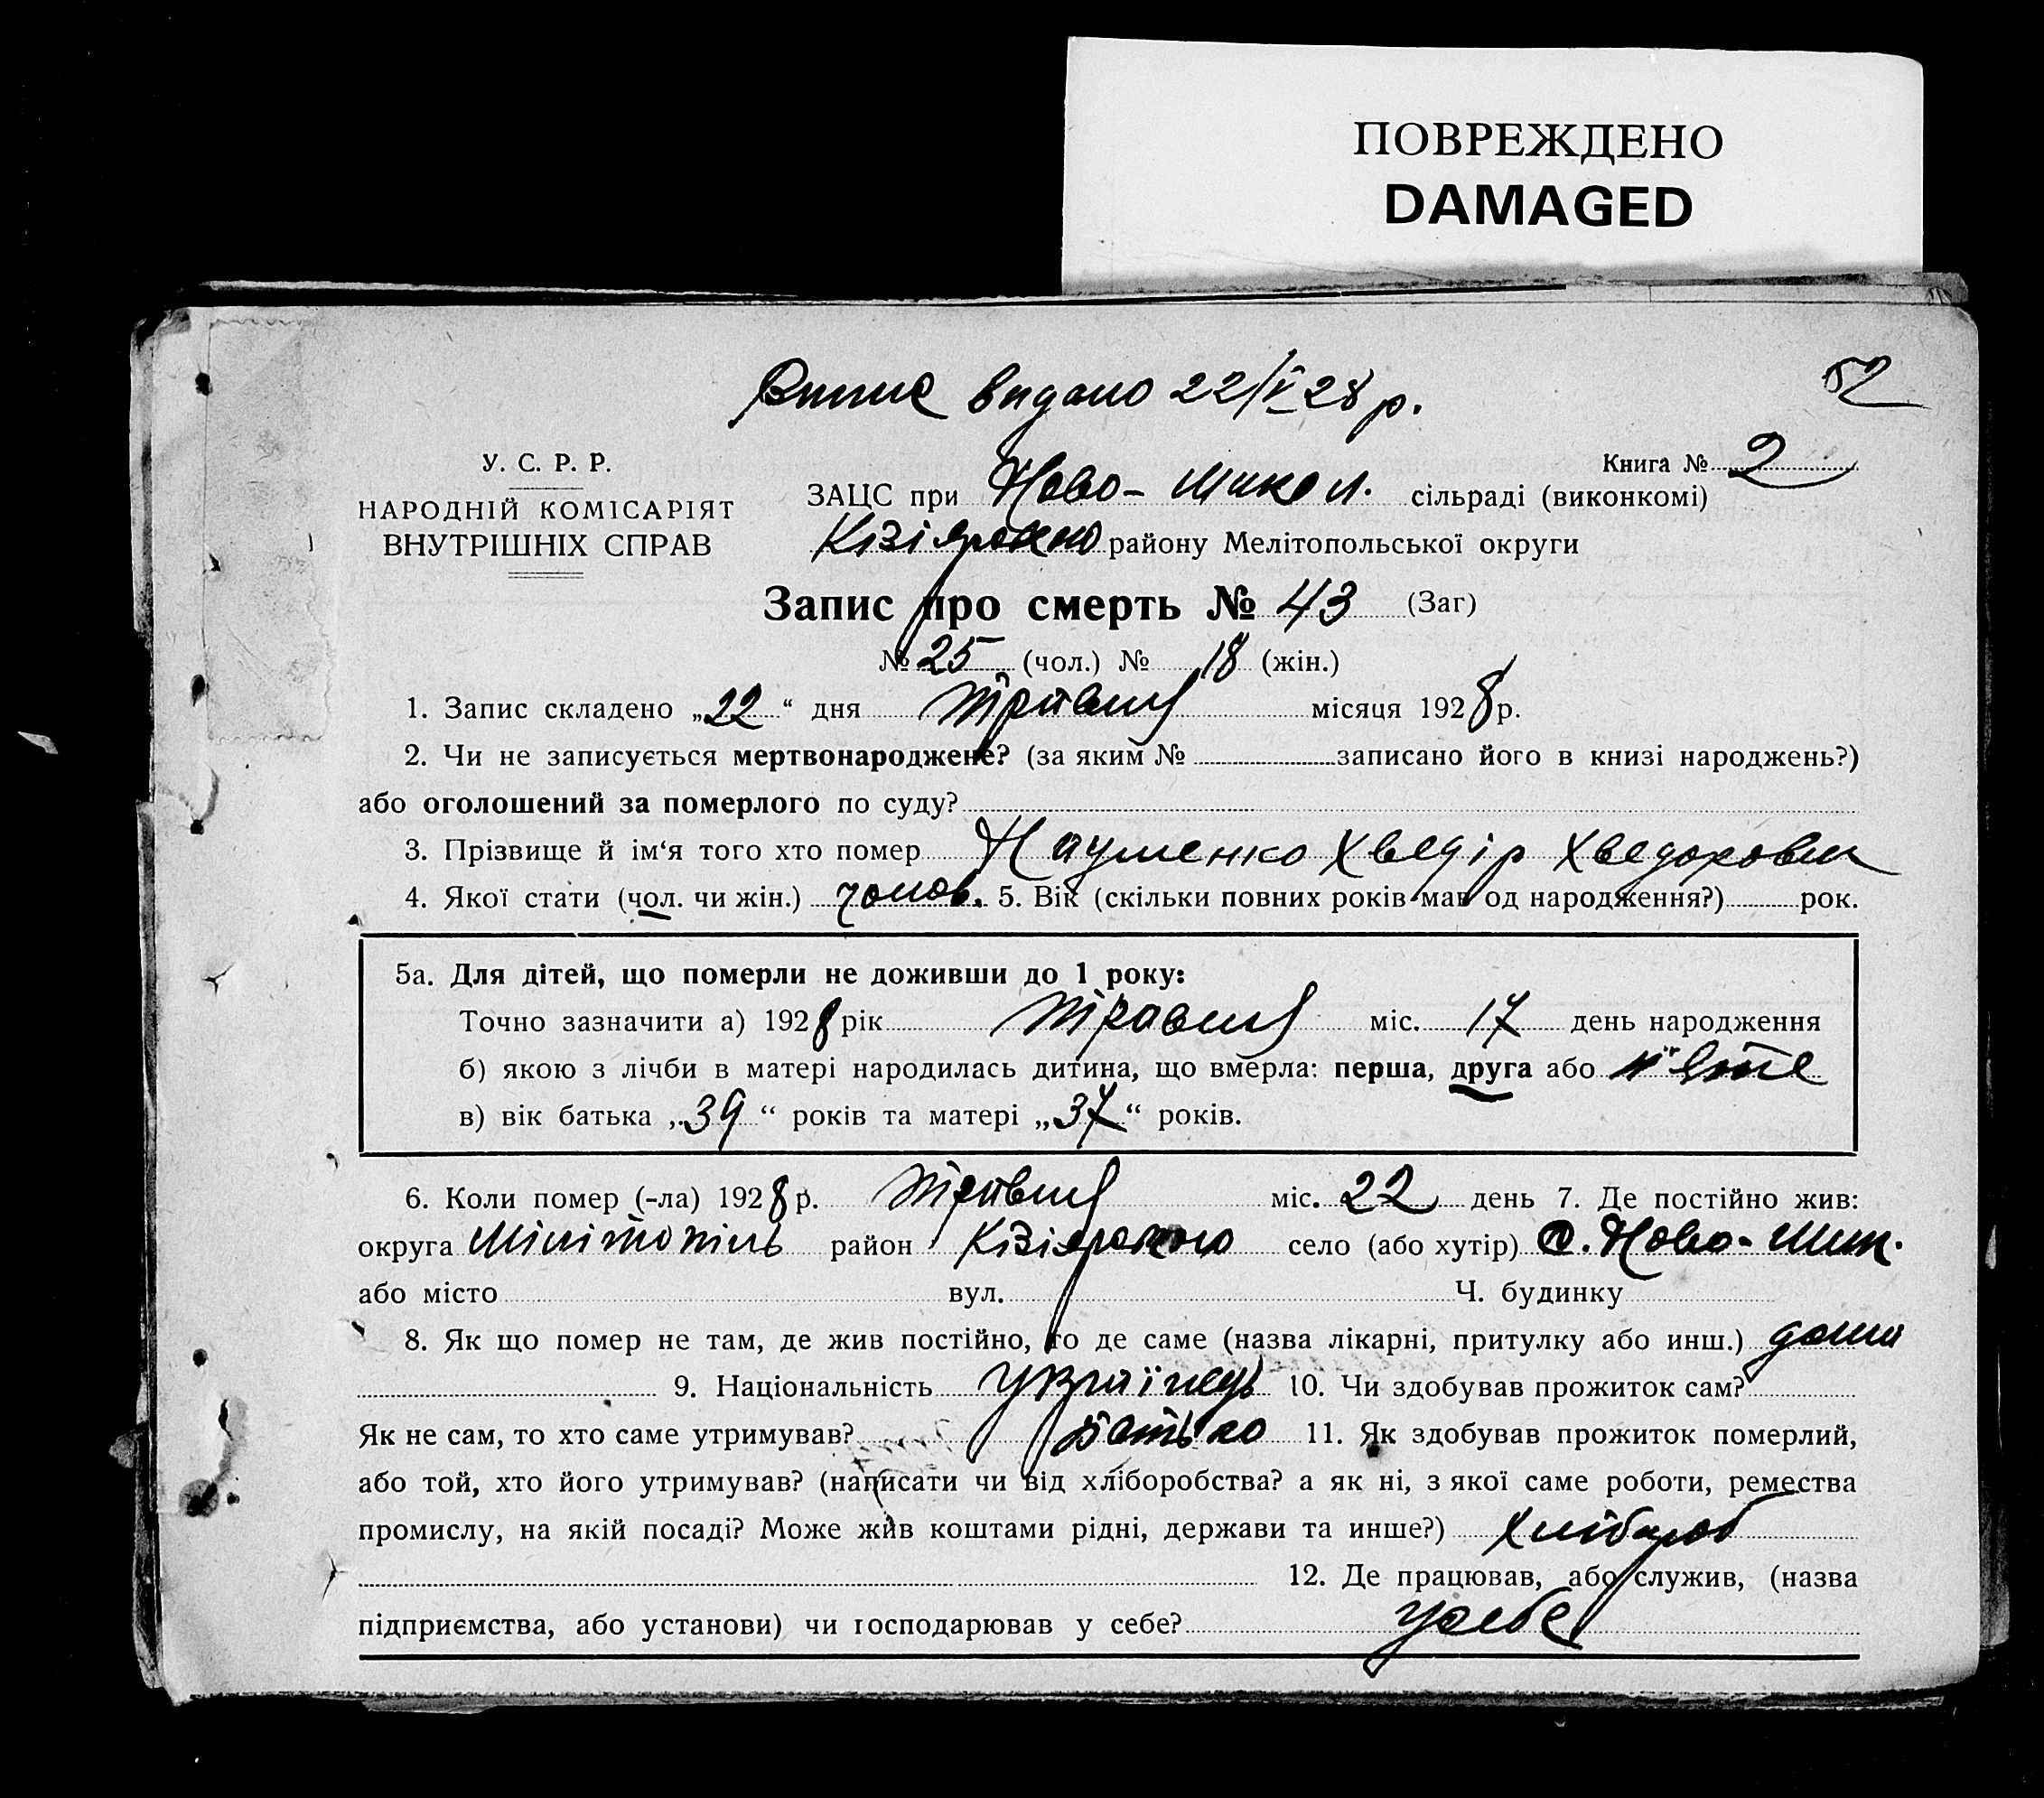 ПОВРЕЖДЕНО
DAMAGED
52
Випис видано 22/V 28 р.
Книга № 2
У. С. Р. Р.
НАРОДНІЙ КОМІСАРІЯТ
ВНУТРІШНІХ СПРАВ
ЗАЦС при Ново-Микол. сільраді (виконкомі)
Кізіярского району Мелітопольської округи
Запис про смерть № 43 (Заг)
№ 25 (чол.) № 18 (жін.)
1. Запис складено „22“ дня Травня місяця 1928 р.
2. Чи не записується мертвонароджене? (за яким № записано його в книзі народжень?)
або оголошений за померлого по суду?
3. Прізвище й ім‘я того хто помер Науменко Хведір Хведорович
4. Якої стати (чол. чи жін.) чолов. 5. Вік (скільки повних років мав од народження?) рок.
5а. Для дітей, що померли не доживши до 1 року:
Точно зазначити а) 1928 рік Травня міс. 17 день народження
б) якою з лічби в матері народилась дитина, що вмерла: перша, друга або
в) вік батька „39“ років та матері „37“ років.
6. Коли помер (-ла) 1928 р. Травня міс. 22 день 7. Де постійно жив:
округа Мілітопіль район Кізіярского село (або хутір) с. Ново-Мик.
або місто вул. Ч. будинку
8. Як що помер не там, де жив постійно, то де саме (назва лікарні, притулку або инш.) дома
9. Національність Українець 10. Чи здобував прожиток сам?
Як не сам, то хто саме утримував? Батько 11. Як здобував прожиток померлий,
або той, хто його утримував? (написати чи від хліборобства? а як ні, з якої саме роботи, ремества
промислу, на якій посаді? Може жив коштами рідні, держави та инше?) Хлібороб
12. Де працював, або служив, (назва
підприємства, або установи) чи господарював у себе? У себе